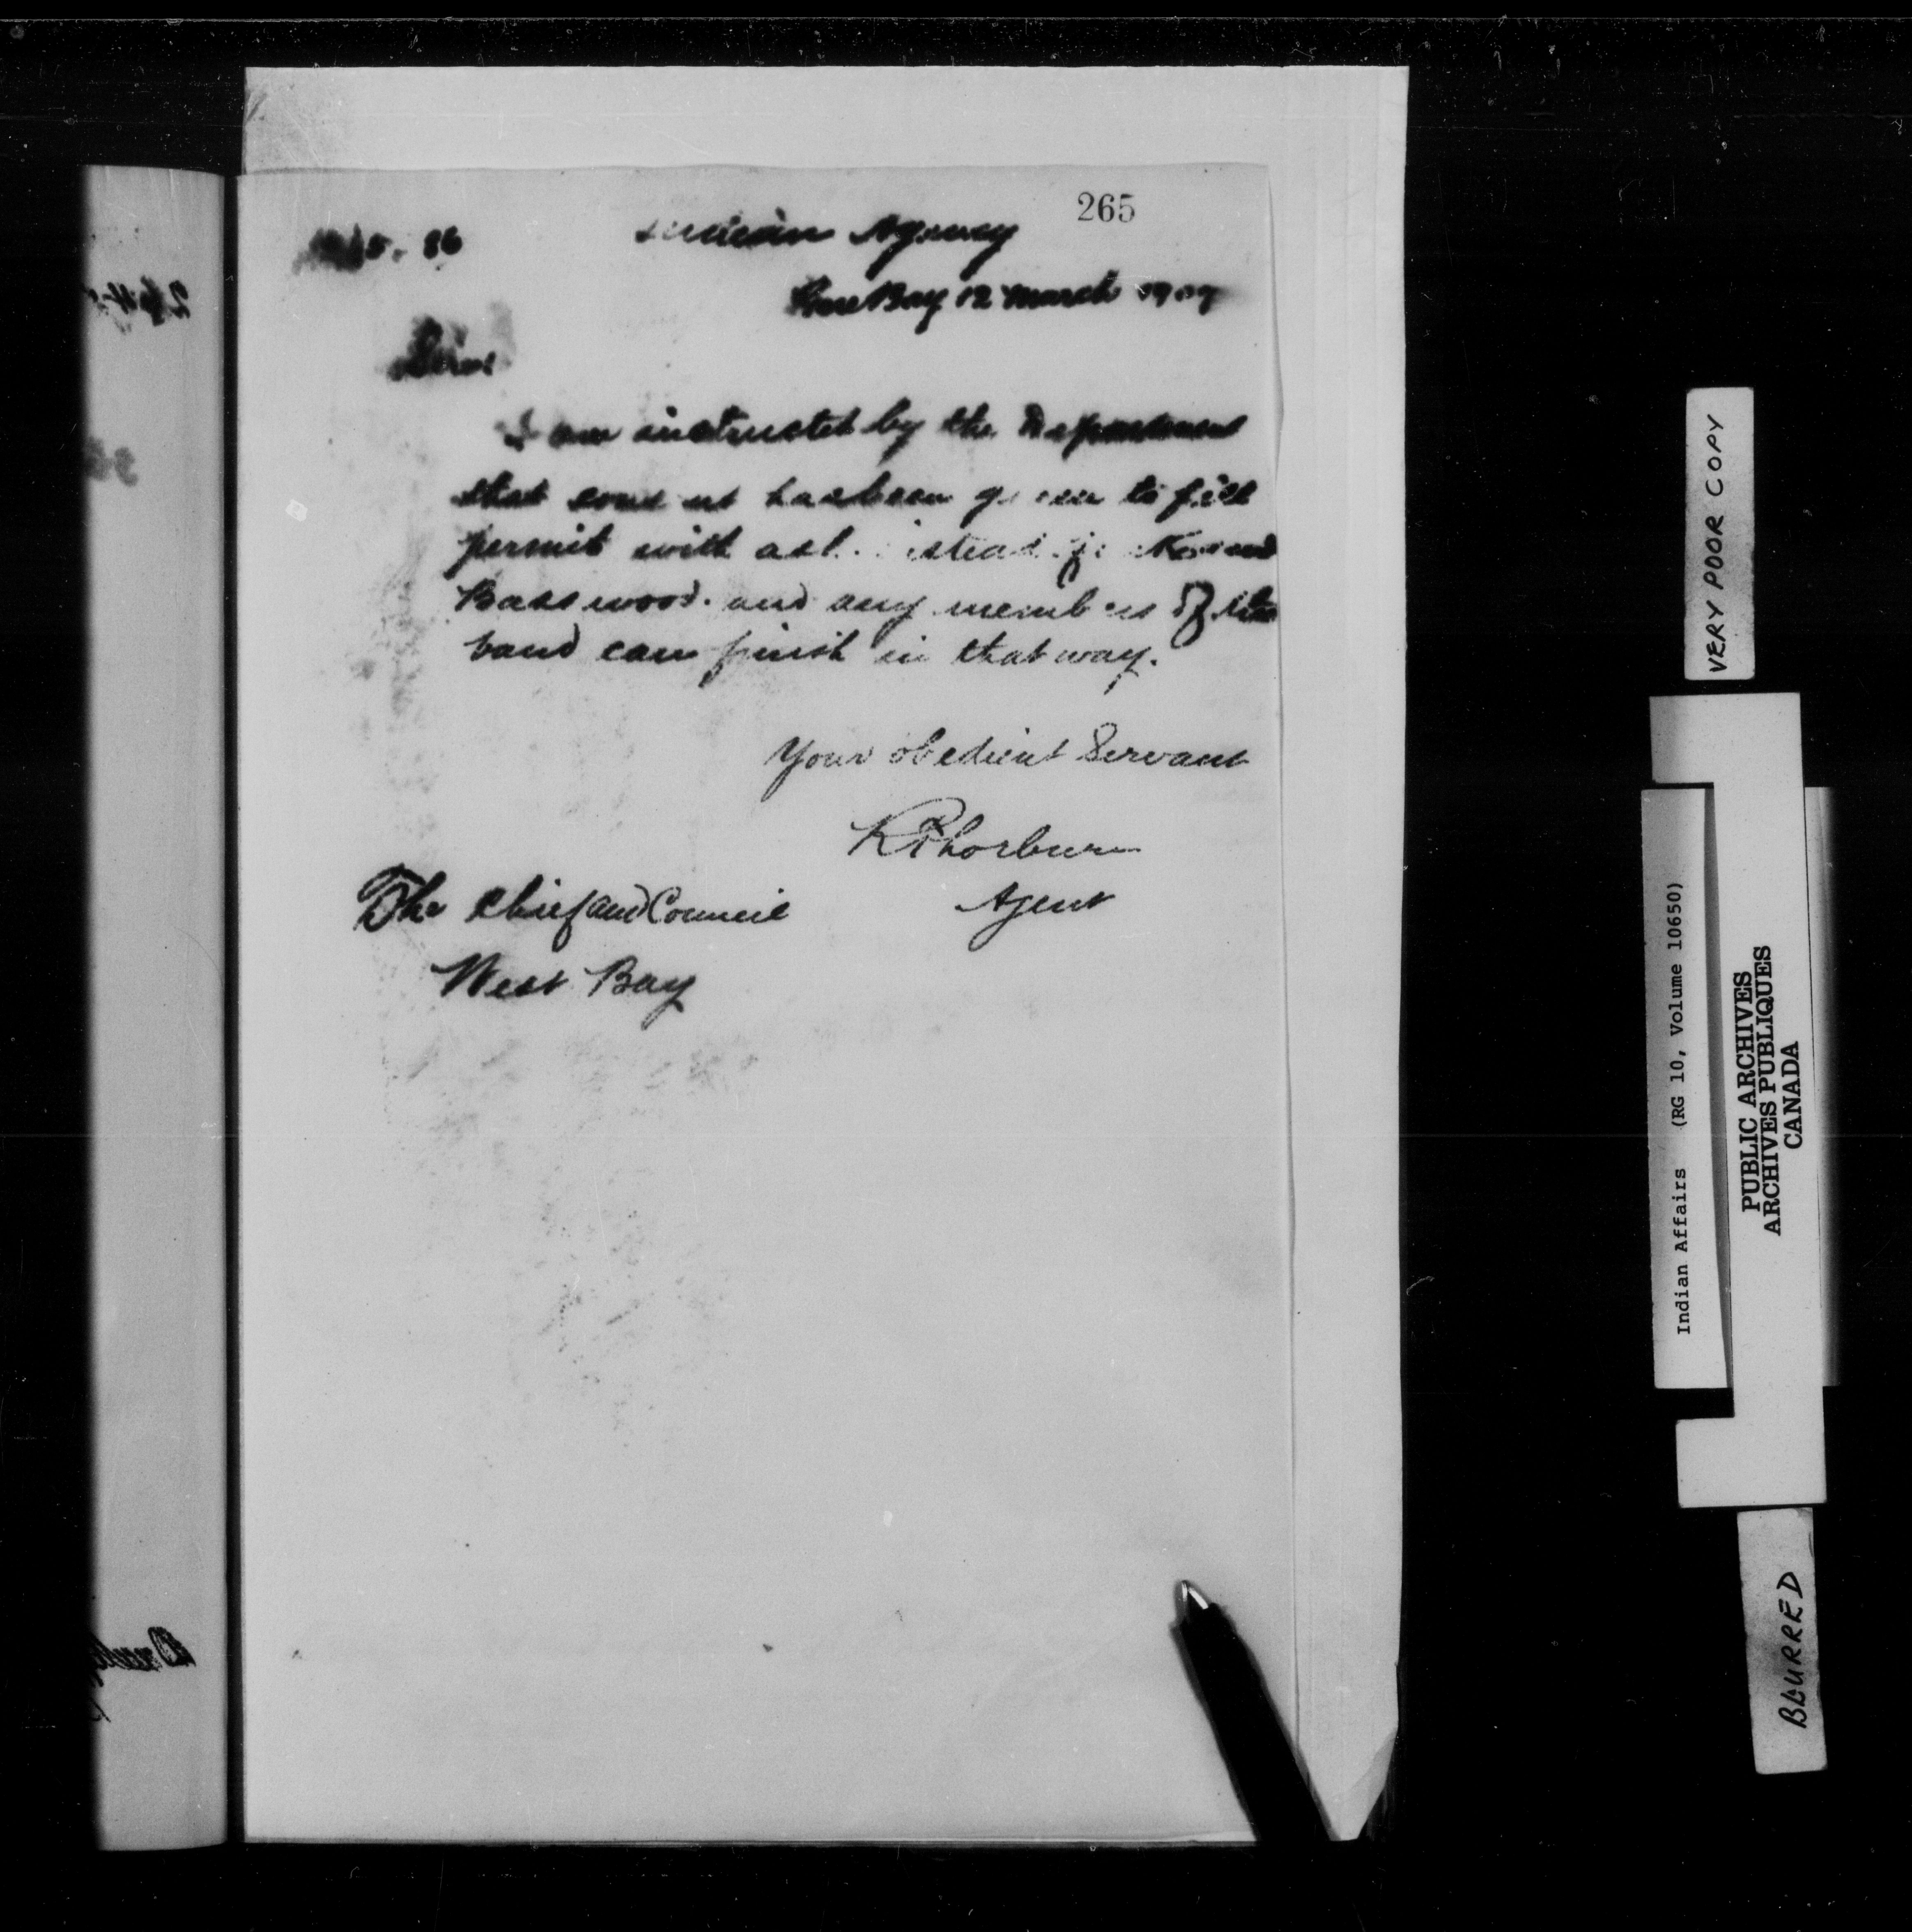 265
86 Indian Agency
Gore Bay 12 March 1909
Sirs
I am instructed by the Department
that consent has been given to fill
permit with ash instead of
Basswood. and any members of the
band can finish in that way.
Your obedient Servant
R Thorburn
Agent
The Chief and Council
West Bay
VERY POOR COPY
Indian Affairs (RG 10, Volume 10650)
PUBLIC ARCHIVES
ARCHIVES PUBLIQUES
CANADA
BLURRED